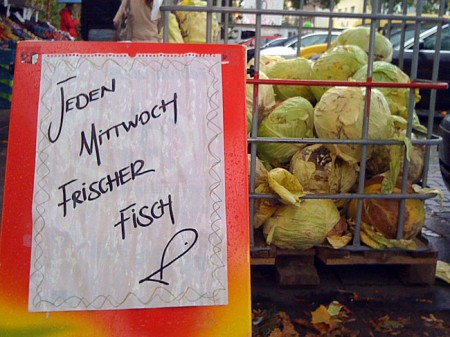 JEDEN
MITTWOCH
FRISCHER
FISCH